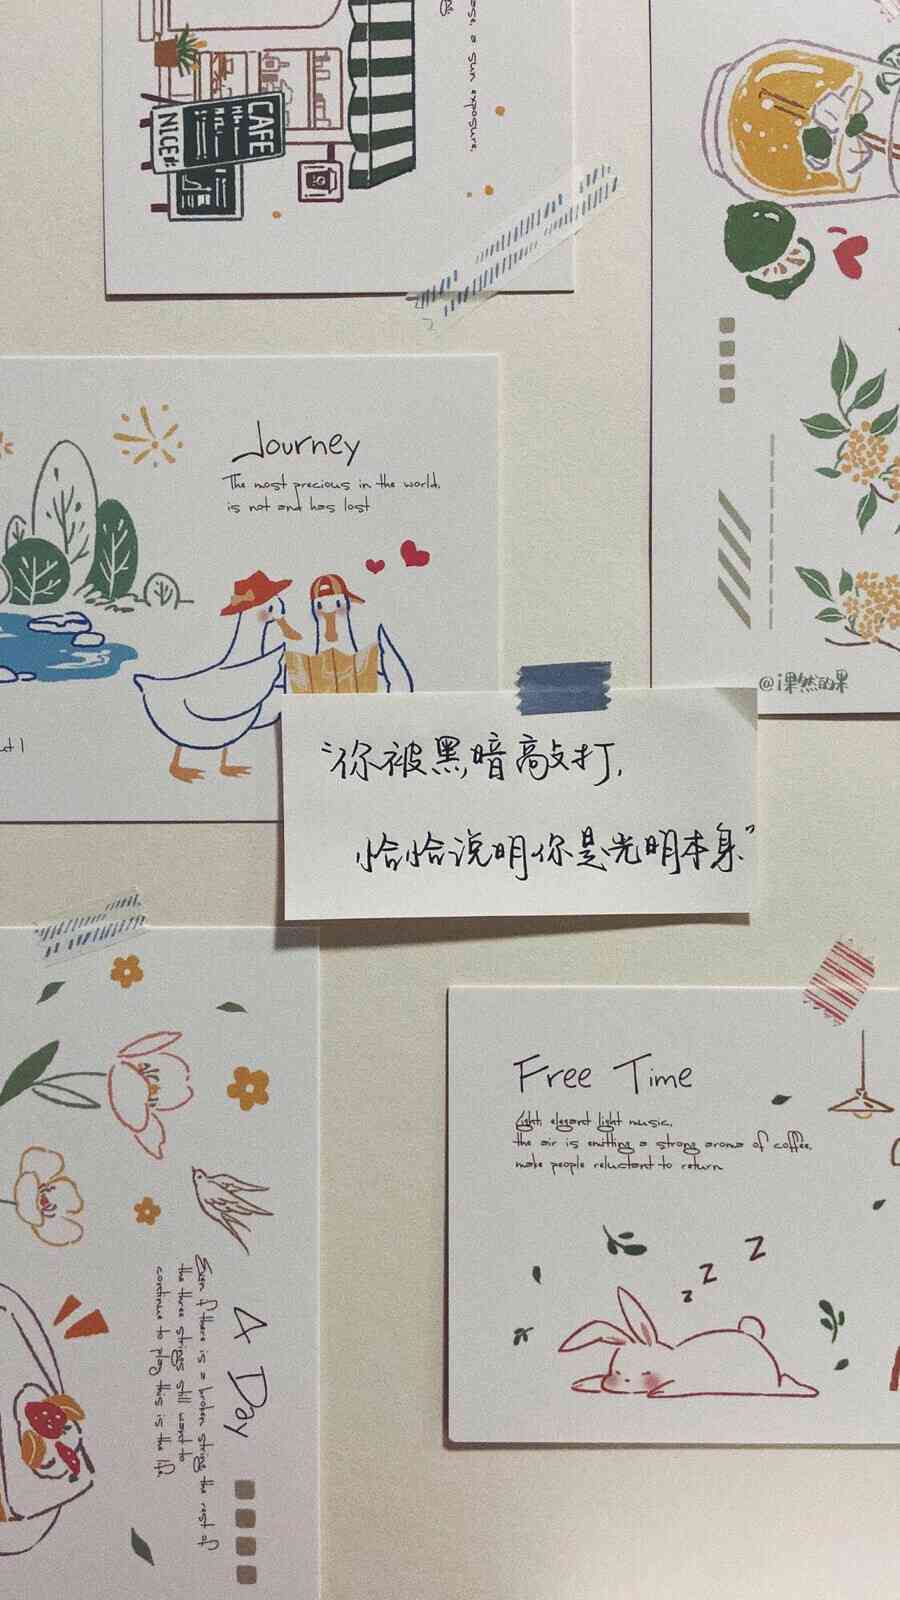 CAFE
NICE
sun exposure.
Journey
The most precious in the world,
is not and has lost
@i果然的果
“你被黑暗敲打,
恰恰说明你是光明本身.”
Free Time
Light, elegant light music,
the air is emitting a strong aroma of coffee,
make people reluctant to return
z z z
A Day
Even if there is a broken string the rest of
the three strings still want to
continue to play this is the life